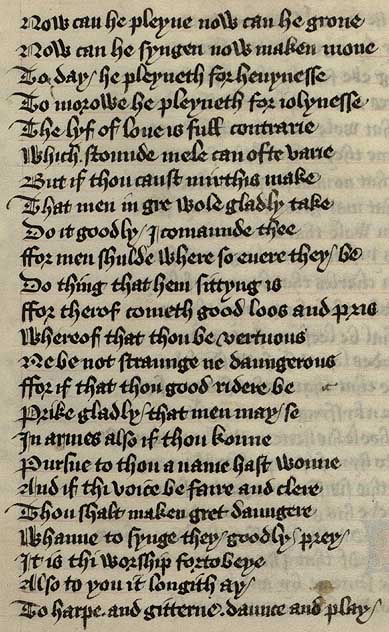 Now can he pleyne now can he grone
Now can he syngen now maken mone
To day / he pleyneth for heuynesse
To morowe he pleyneth for iolynesse
The lyf of loue is full contrarie
Which stounde mele can ofte varie
But if thou canst mirthis make
That men in gre wole gladly take
Do it goodly / I comaunde thee
ffor men shulde where so euere they / be
Do thing that hem sittyng is
ffor therof cometh good loos and pris
Whereof that thou be vertuous
Ne be not straunge ne daungerous
ffor if that thou good ridere be
Prike gladly / that men may / se
In armes also if thou konne
Pursue to thou a name hast wonne
And if thi voice be faire and clere
Thou shalt maken gret daungere
Whanne to synge they / goodly / prey /
It is thi worship fortobeye
Also to you it longith ay /
To harpe . and gitterne . daunce and play /